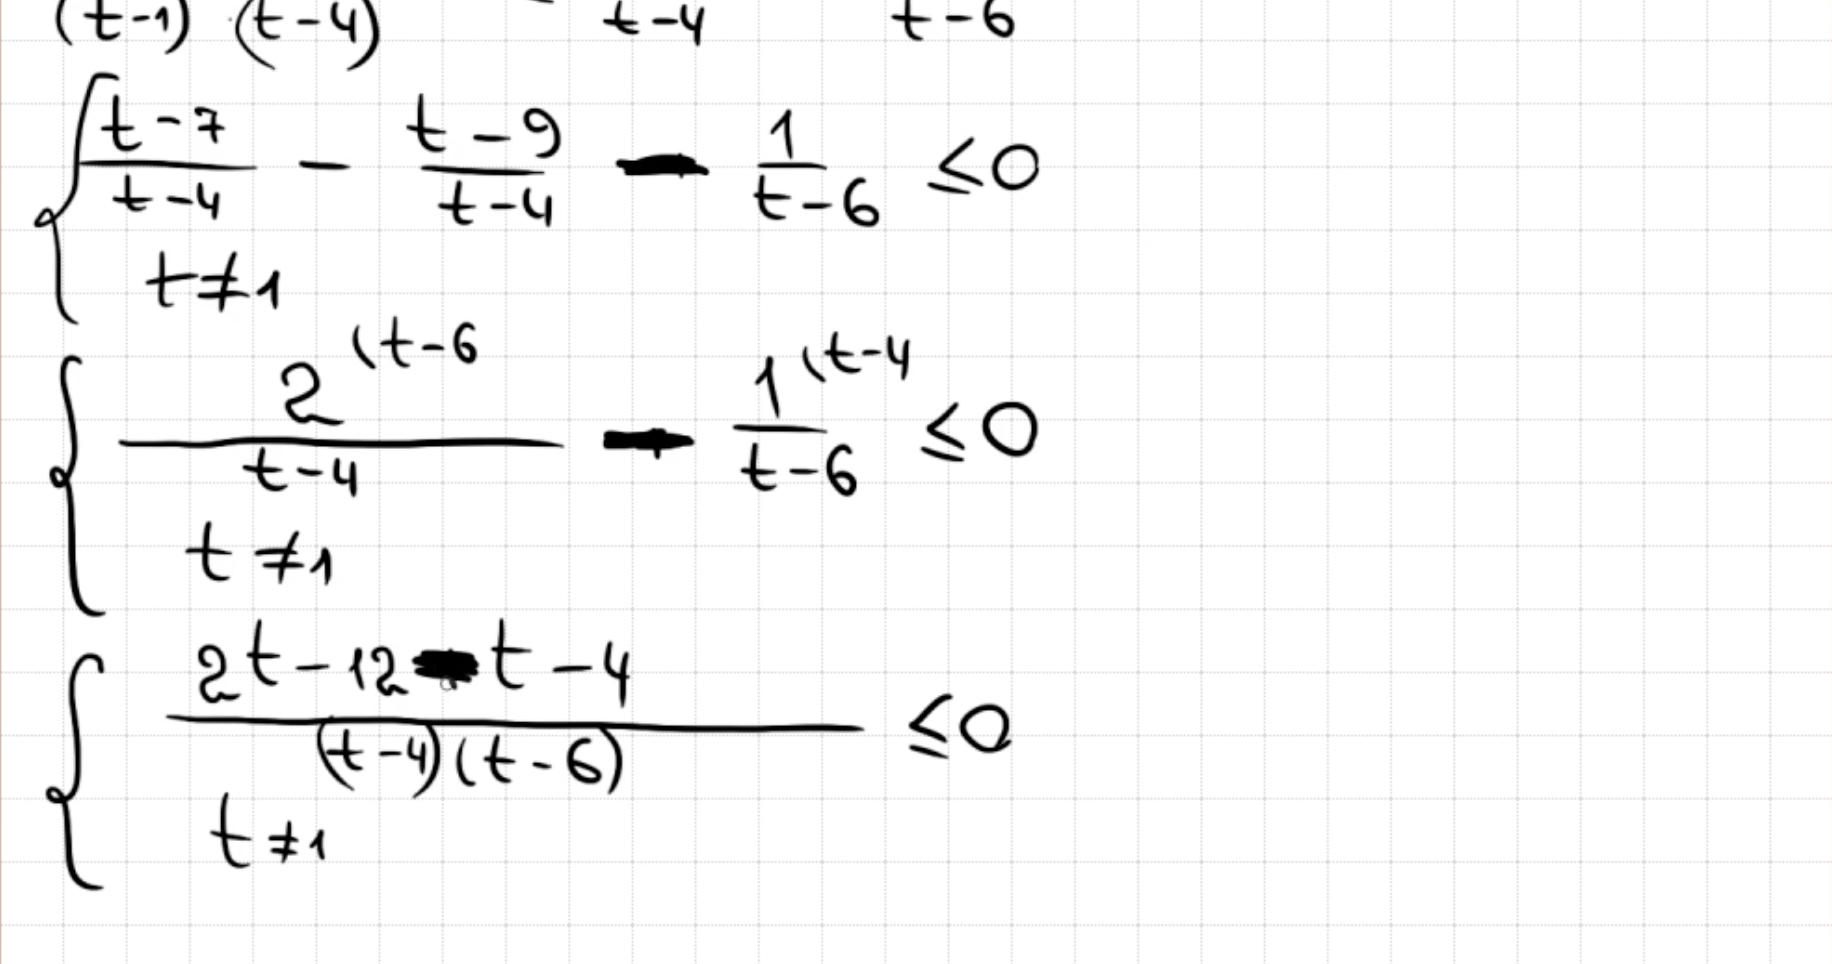 (t-1) (t-4) t-4 t-6
t-7 / t-4 - t-9 / t-4 - 1 / t-6 ≤0
t≠1
2 (t-6 / t-4 - 1 (t-4 / t-6 ≤0
t≠1
2t-12-t-4 / (t-4)(t-6) ≤0
t≠1